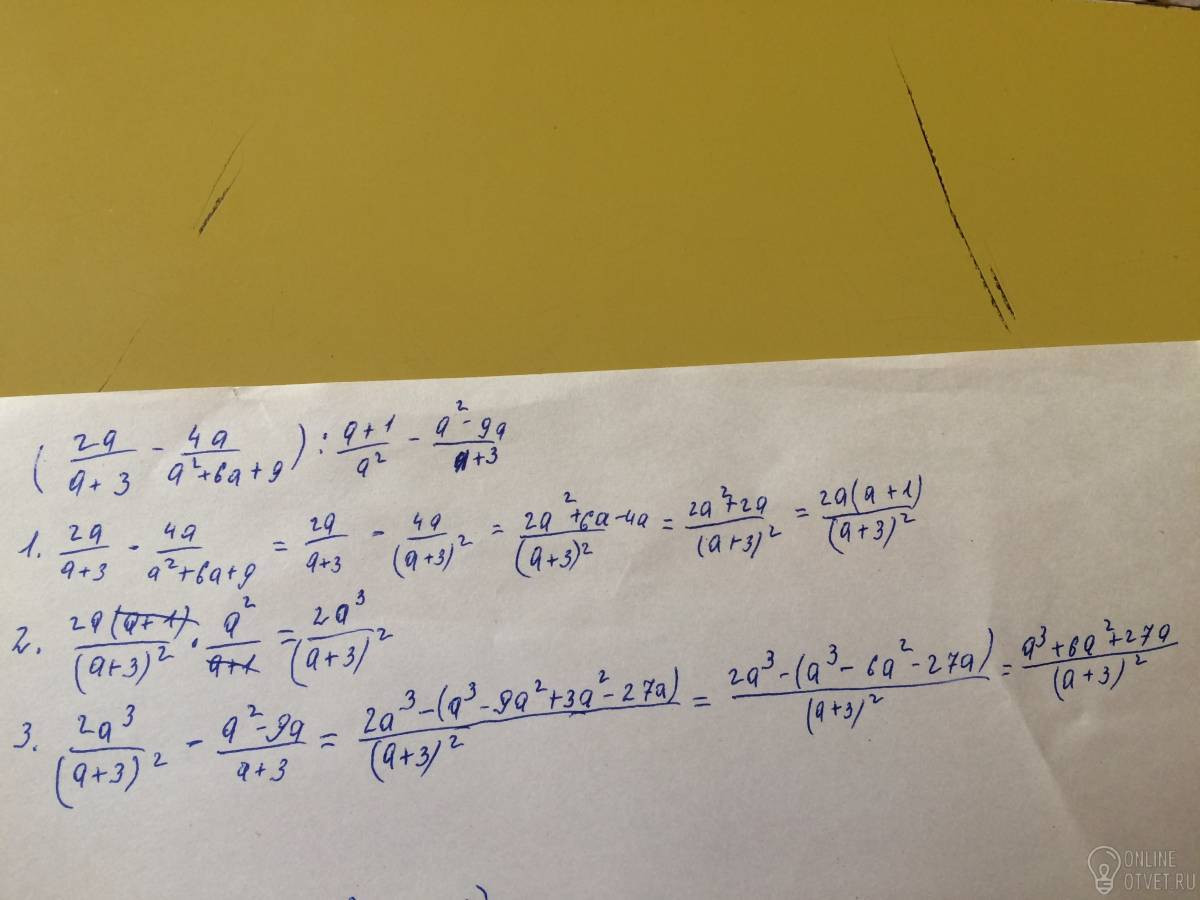 (2a/(a+3) - 4a/(a²+6a+9)) : (a+1)/a² - (a²-9a)/(a+3)
1. 2a/(a+3) - 4a/(a²+6a+9) = 2a/(a+3) - 4a/(a+3)² = (2a²+6a-4a)/(a+3)² = (2a²+2a)/(a+3)² = 2a(a+1)/(a+3)²
2. 2a(a+1)/(a+3)² · a²/(a+1) = 2a³/(a+3)²
3. 2a³/(a+3)² - (a²-9a)/(a+3) = (2a³-(a³-9a²+3a²-27a))/(a+3)² = (2a³-(a³-6a²-27a))/(a+3)² = (a³+6a²+27a)/(a+3)²
ONLINE
OTVET.RU